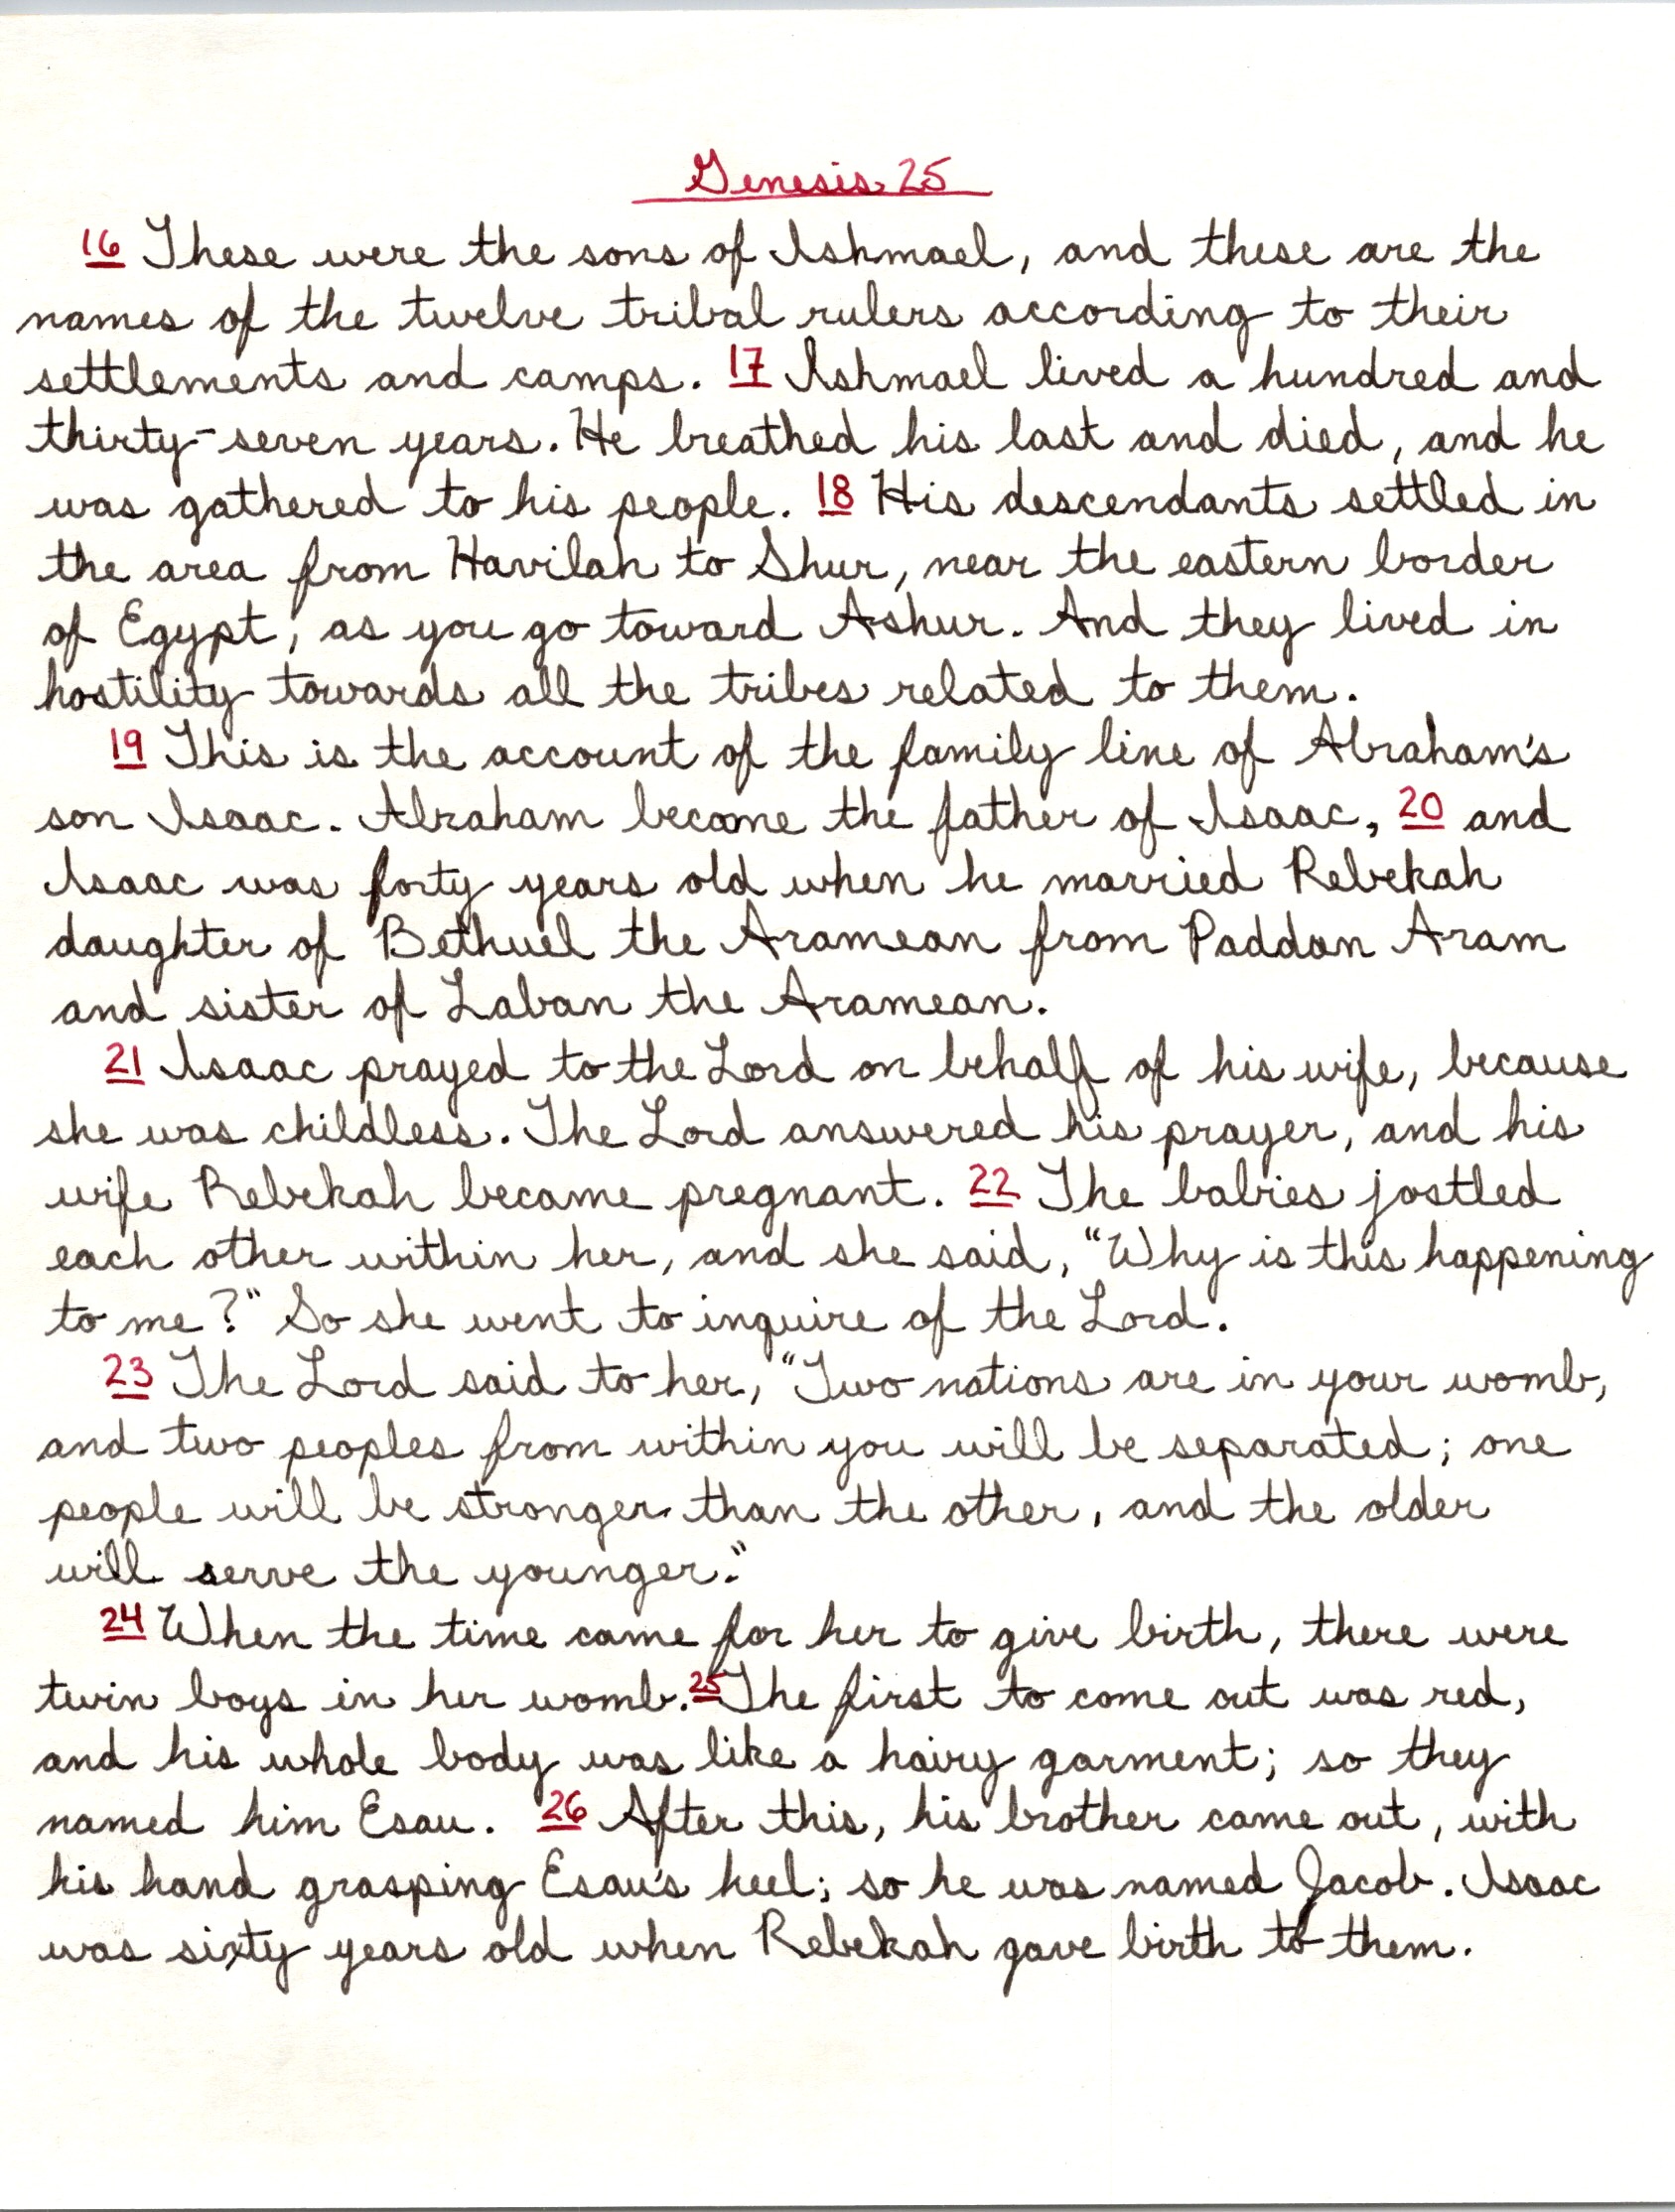 Genesis 25
16 These were the sons of Ishmael, and these are the
names of the twelve tribal rulers according to their
settlements and camps. 17 Ishmael lived a hundred and
thirty-seven years. He breathed his last and died, and he
was gathered to his people. 18 His descendants settled in
the area from Havilah to Shur, near the eastern border
of Egypt, as you go toward Ashur. And they lived in
hostility towards all the tribes related to them.
19 This is the account of the family line of Abraham's
son Isaac. Abraham became the father of Isaac, 20 and
Isaac was forty years old when he married Rebekah
daughter of Bethuel the Aramean from Paddan Aram
and sister of Laban the Aramean.
21 Isaac prayed to the Lord on behalf of his wife, because
she was childless. The Lord answered his prayer, and his
wife Rebekah became pregnant. 22 The babies jostled
each other within her, and she said, "Why is this happening
to me?" So she went to inquire of the Lord.
23 The Lord said to her, "Two nations are in your womb,
and two peoples from within you will be separated; one
people will be stronger than the other, and the older
will serve the younger."
24 When the time came for her to give birth, there were
twin boys in her womb. 25 The first to come out was red,
and his whole body was like a hairy garment; so they
named him Esau. 26 After this, his brother came out, with
his hand grasping Esau's heel; so he was named Jacob. Isaac
was sixty years old when Rebekah gave birth to them.